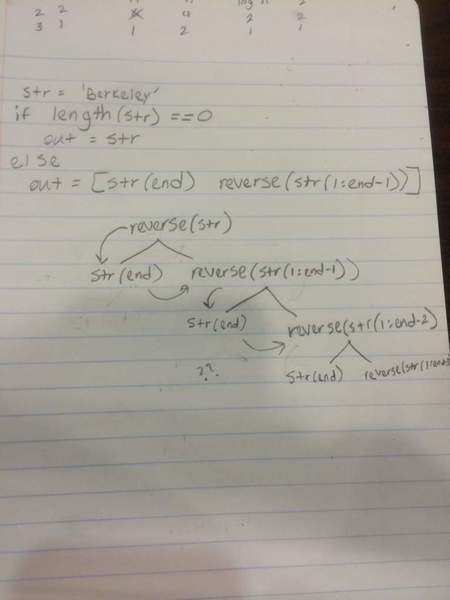 log n 2
2 2 4 2 2
3 1 1 2 1 1
str = 'Berkeley'
if length(str) ==0
out = str
else
out = [str(end) reverse(str(1:end-1))]
reverse(str)
str(end) reverse(str(1:end-1))
str(end) reverse(str(1:end-2)
??
str(end) reverse(str(1:end-3